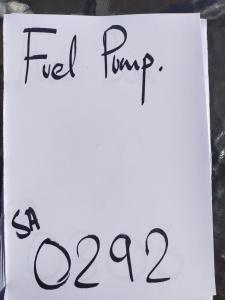 Fuel Pump.
SA
0292